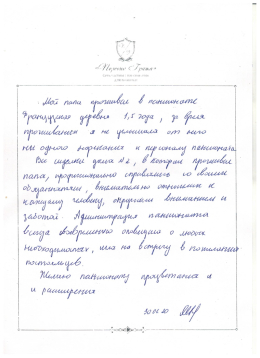 Мой папа проживал в пансионате
Французская деревня 1,5 года, за время
проживания я не услышала от него
ни одного нарекания к персоналу пансионата.
Все сиделки дома №2, в котором проживал
папа, профессионально справлялись со своими
обязанностями, внимательно относились к
каждому человеку, окружали вниманием и
заботой. Администрация пансионата
всегда своевременно оповещала о любых
необходимостях, шла на встречу в пожеланиях
постояльцев.
Желаю пансионату процветания
и расширения